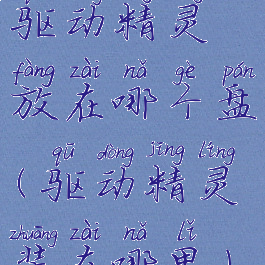 驱动精灵
fàng zài nǎ gè pán
放在哪个盘
qū dòng jīng líng
(驱动精灵
zhuāng zài nǎ lǐ
装在哪里)